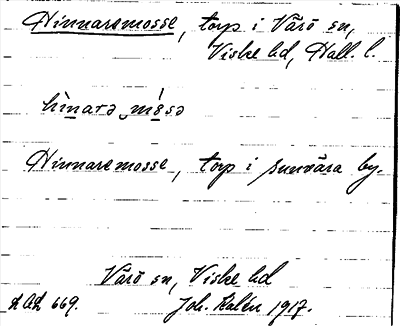 Hinnaremosse, torp i Värö sn,
Viske hd, Hall. l.
hìnarə mòsə
Hinnaremosse, torp i Sunvära by.
Värö sn, Viske hd
669. Joh. Kalén 1917.